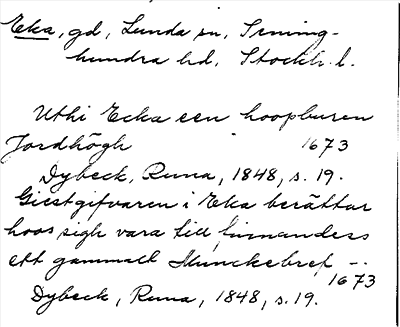 Eka, gd, Lunda sn, Srming-
hundra hd, Stockh. l.
Uthi Ecka een hoopburen
Jordhögh 1673
Dybeck, Runa, 1848, s. 19.
Giestgifvaren i Eka berättar
hoos sigh vara till finnandess
ett gammalt Munckebref --
1673
Dybeck, Runa, 1848, s. 19.